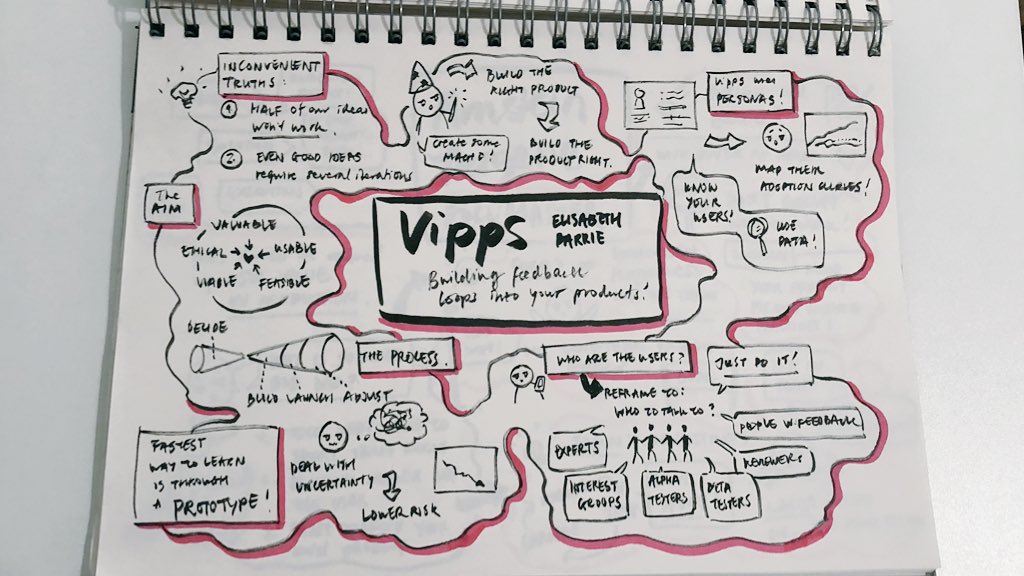 INCONVENIENT
TRUTHS:
1 HALF OF our ideas
WON'T WORK.
2 EVEN GOOD IDEAS
require several iterations
create some
MAGIC!
BUILD THE
RIGHT PRODUCT
BUILD THE
PRODUCT RIGHT.
Vipps user
PERSONAS!
MAP THEIR
ADOPTION CURVES!
KNOW
YOUR
USERS!
USE
DATA!
The
AIM
VALUABLE
ETHICAL
USABLE
VIABLE
FEASIBLE
Vipps
ELISABETH
BARRIE
Building feedback
loops into your products!
DECIDE
BUILD LAUNCH ADJUST
THE PROCESS.
FASTEST
WAY TO LEARN
IS THROUGH
A PROTOTYPE!
DEAL WITH
UNCERTAINTY
LOWER RISK
WHO ARE THE USERS?
REFRAME TO:
WHO TO TALK TO?
JUST DO IT!
PEOPLE W. FEEDBACK
REVIEWERS
EXPERTS
INTEREST
GROUPS
ALPHA
TESTERS
BETA
TESTERS